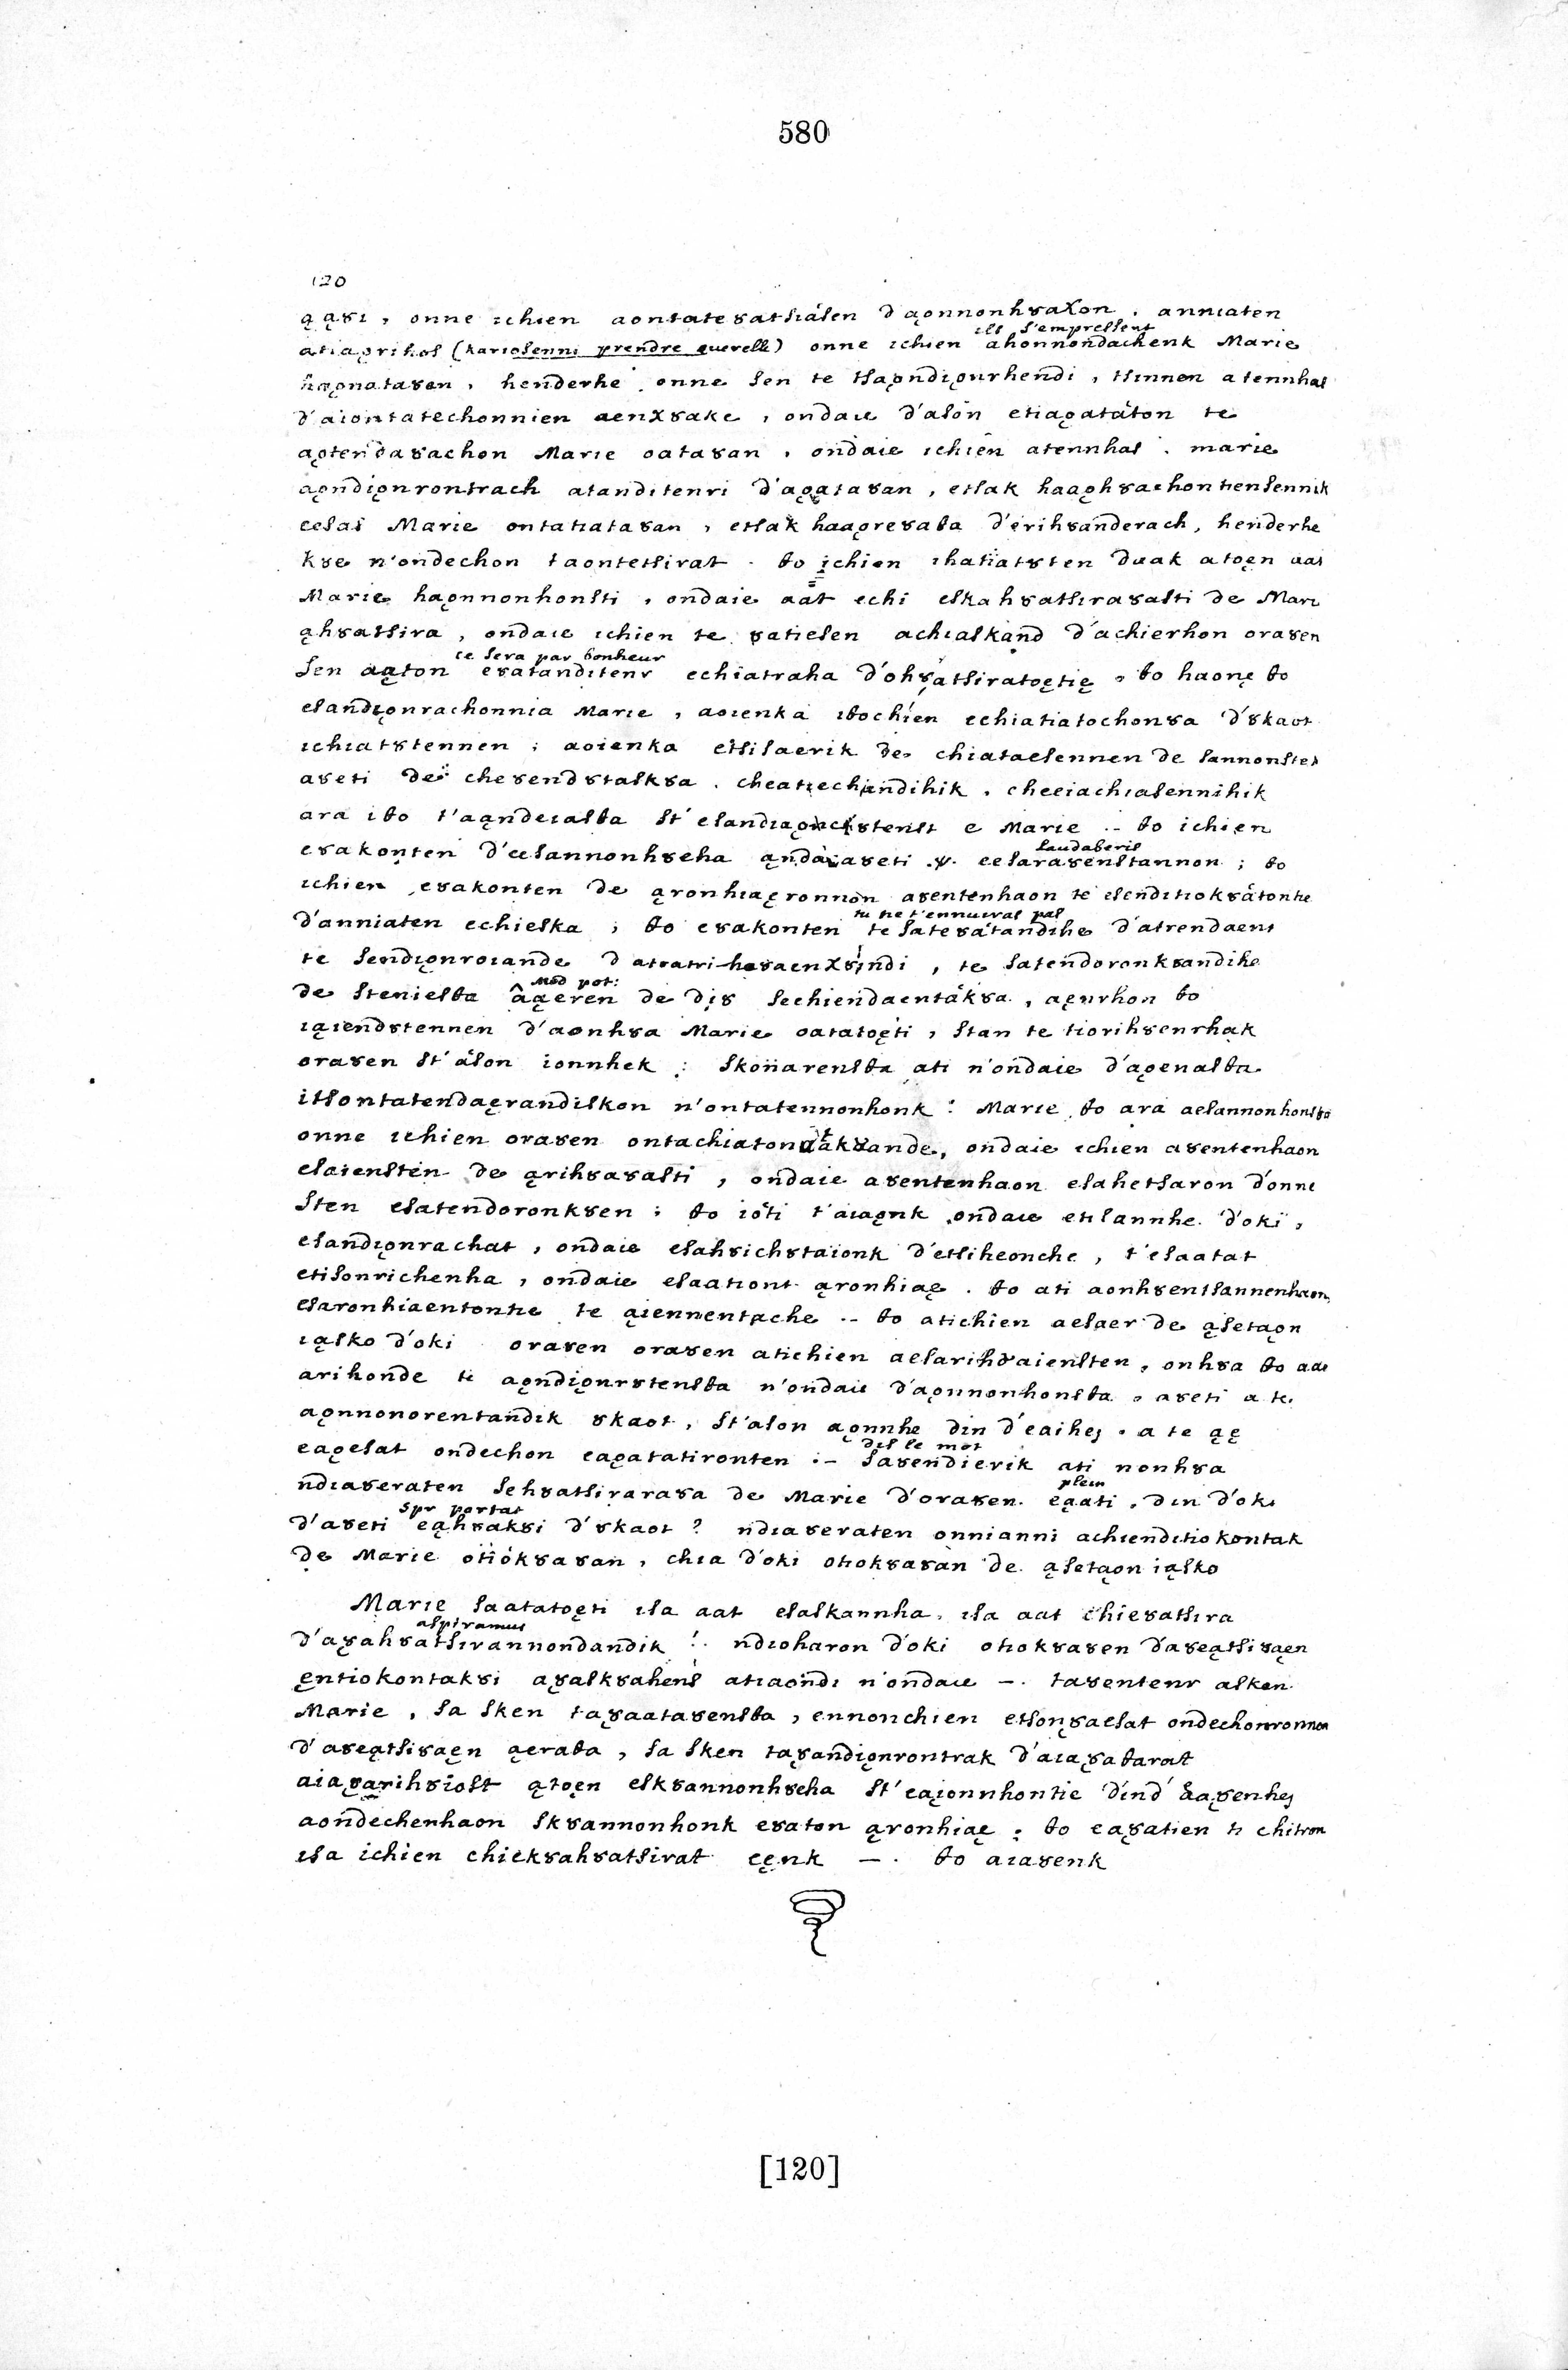 580
120
ąąȣı, onne ichien aontateȣatsiásen d'aǫnnonhȣaẊon. anniaten
ils s'empressent
atiaǫrihos (kariosenni prendre querelle) onne ichien ahonnondachenk Marie
haǫnataȣan, henderhe onne sen te tsaǫndiǫnrhendi, tsinnen atennhas
d'aiontatechonnien aenẊȣake, ondaie d'asón etiaǫatáton te
aǫtendaȣachon Marie oataȣan, ondaie ichien atennhas. marie
aǫndiǫnrontrach atanditenri d'aǫataȣan, etsak haaǫhȣachontiensennik
eesas Marie ontatiataȣan, etsak haaǫreȣaƟa d'erihȣanderach, henderhe
kȣe n'ondechon taontetsirat. Ɵo ichien ihatiatȣten duak atoęn aat
Marie haǫnnonhonsti, ondaie aat echi eskahȣatsiraȣasti de Mari
ąhȣatsira, ondaie ichien te ȣatiesen achiaskand d'achierhon oraȣen
ce sera par bonheur
sen aąton eȣatanditenr echiatraha d'ohȣatsiratoętię, Ɵo haonę Ɵo
esandiǫnrachonnia Marie, aoienka iƟochien echiatiatochonȣa d'ȣkaot
ichiatȣtennen; aoienka etsisaerik de chiataesennen de sannonstes
aȣeti de cheȣendȣtaskȣa. cheatiechiandihik. cheeiachiasennihik
ara iƟo t'aąndeiasƟa st' esandiaǫnchȣtenst e Marie .. Ɵo ichien
laudaberis
eȣakonten d'eesannonhȣeha ąndaiaȣeti .ꝟ. eesaraȣenstannon; Ɵo
ichien eȣakonten de ąronhiaęronnon aȣentenhaon te esenditiokȣátontie
tu ne t'ennuiras pas
d'anniaten echieska; Ɵo eȣakonten te sateȣátandihe d'atrendaens
te sendiǫnroiande d'ateatrihȣaenẊȣindi, te satendoronkȣandihe
Mod pot:
de steniesƟa âąeren de diȣ sechiendaentákȣa, aęnrhon Ɵo
iąiendȣtennen d'aonhȣa Marie oatatoęti, stan te tiorihȣenrhak
oraȣen st'áson ionnhek; skonarensƟa ati n'ondaie d'aǫenasƟa
itsontatendaęrandiskon n'ontatennonhonk: Marie Ɵo ara aesannonhonsƟa
onne ichien oraȣen ontachiatondakȣande, ondaie ichien aȣentenhaon
esaiensten de ąrihȣaȣasti, ondaie aȣentenhaon esahetsaron d'onne
sten esatendoronkȣen; Ɵo ióti t'aiaǫnk ondaie etsannhe d'oki,
esandiǫnrachat, ondaie esahȣichȣtaionk d'etsiheonche, t'esaatat
etisonrichenha, ondaie esaationt ąronhiaę. Ɵo ati aonhȣentsannenhaon
esaronhiaentontie te ąiennentache .. Ɵo atichien aesaer de ąsetaǫn
iąsko d'oki oraȣen oraȣen atichien aesarihȣaiensten, onhȣa Ɵo aat
arihonde te aǫndiǫnrȣtensƟa n'ondaie d'aǫnnonhonsƟa, aȣeti a te
aǫnnonorentandik ȣkaot, st'ason aǫnnhe din d'eaihej. a te ąę
dis le mot
eaǫesat ondechon eaǫatatironten :- saȣendierik ati nonhȣa
plein
ndiaȣeraten sehȣatsiraraȣa de Marie d'oraȣen eąati. din d'oki
spr portat
d'aȣeti eąhȣakȣi d'ȣkaot? ndiaȣeraten onnianni achienditiokontak
de Marie otiókȣaȣan, chia d'oki otiokȣaȣan de ąsetaǫn iąsko
Marie saatatoęti isa aat esaskannha, isa aat chieȣatsira
aspiramus
d'aȣahȣatsirannondandik !. ndioharon d'oki otiokȣaȣen d'aȣeątsiȣaęn
ęntiokontakȣi aȣaskȣahens atiaondi n'ondaie —. taȣentenr asken
Marie, sa sken taȣaataȣensƟa, ennonchien etsonȣaesat ondechonronnon
d'aȣeątsiȣaęn ąeraƟa, sa sken taȣandiǫnrontrak d'aiaȣaƟarat
aiaȣarihȣiost ątoęn eskȣannonhȣeha st' eaįonnhontie d'ind' aaȣenhej
aondechenhaon skȣannonhonk eȣaton ąronhiaę; Ɵo eaȣatien ti chitron
isa ichien chiekȣahȣatsirat eęnk —. Ɵo aiaȣenk
[120]